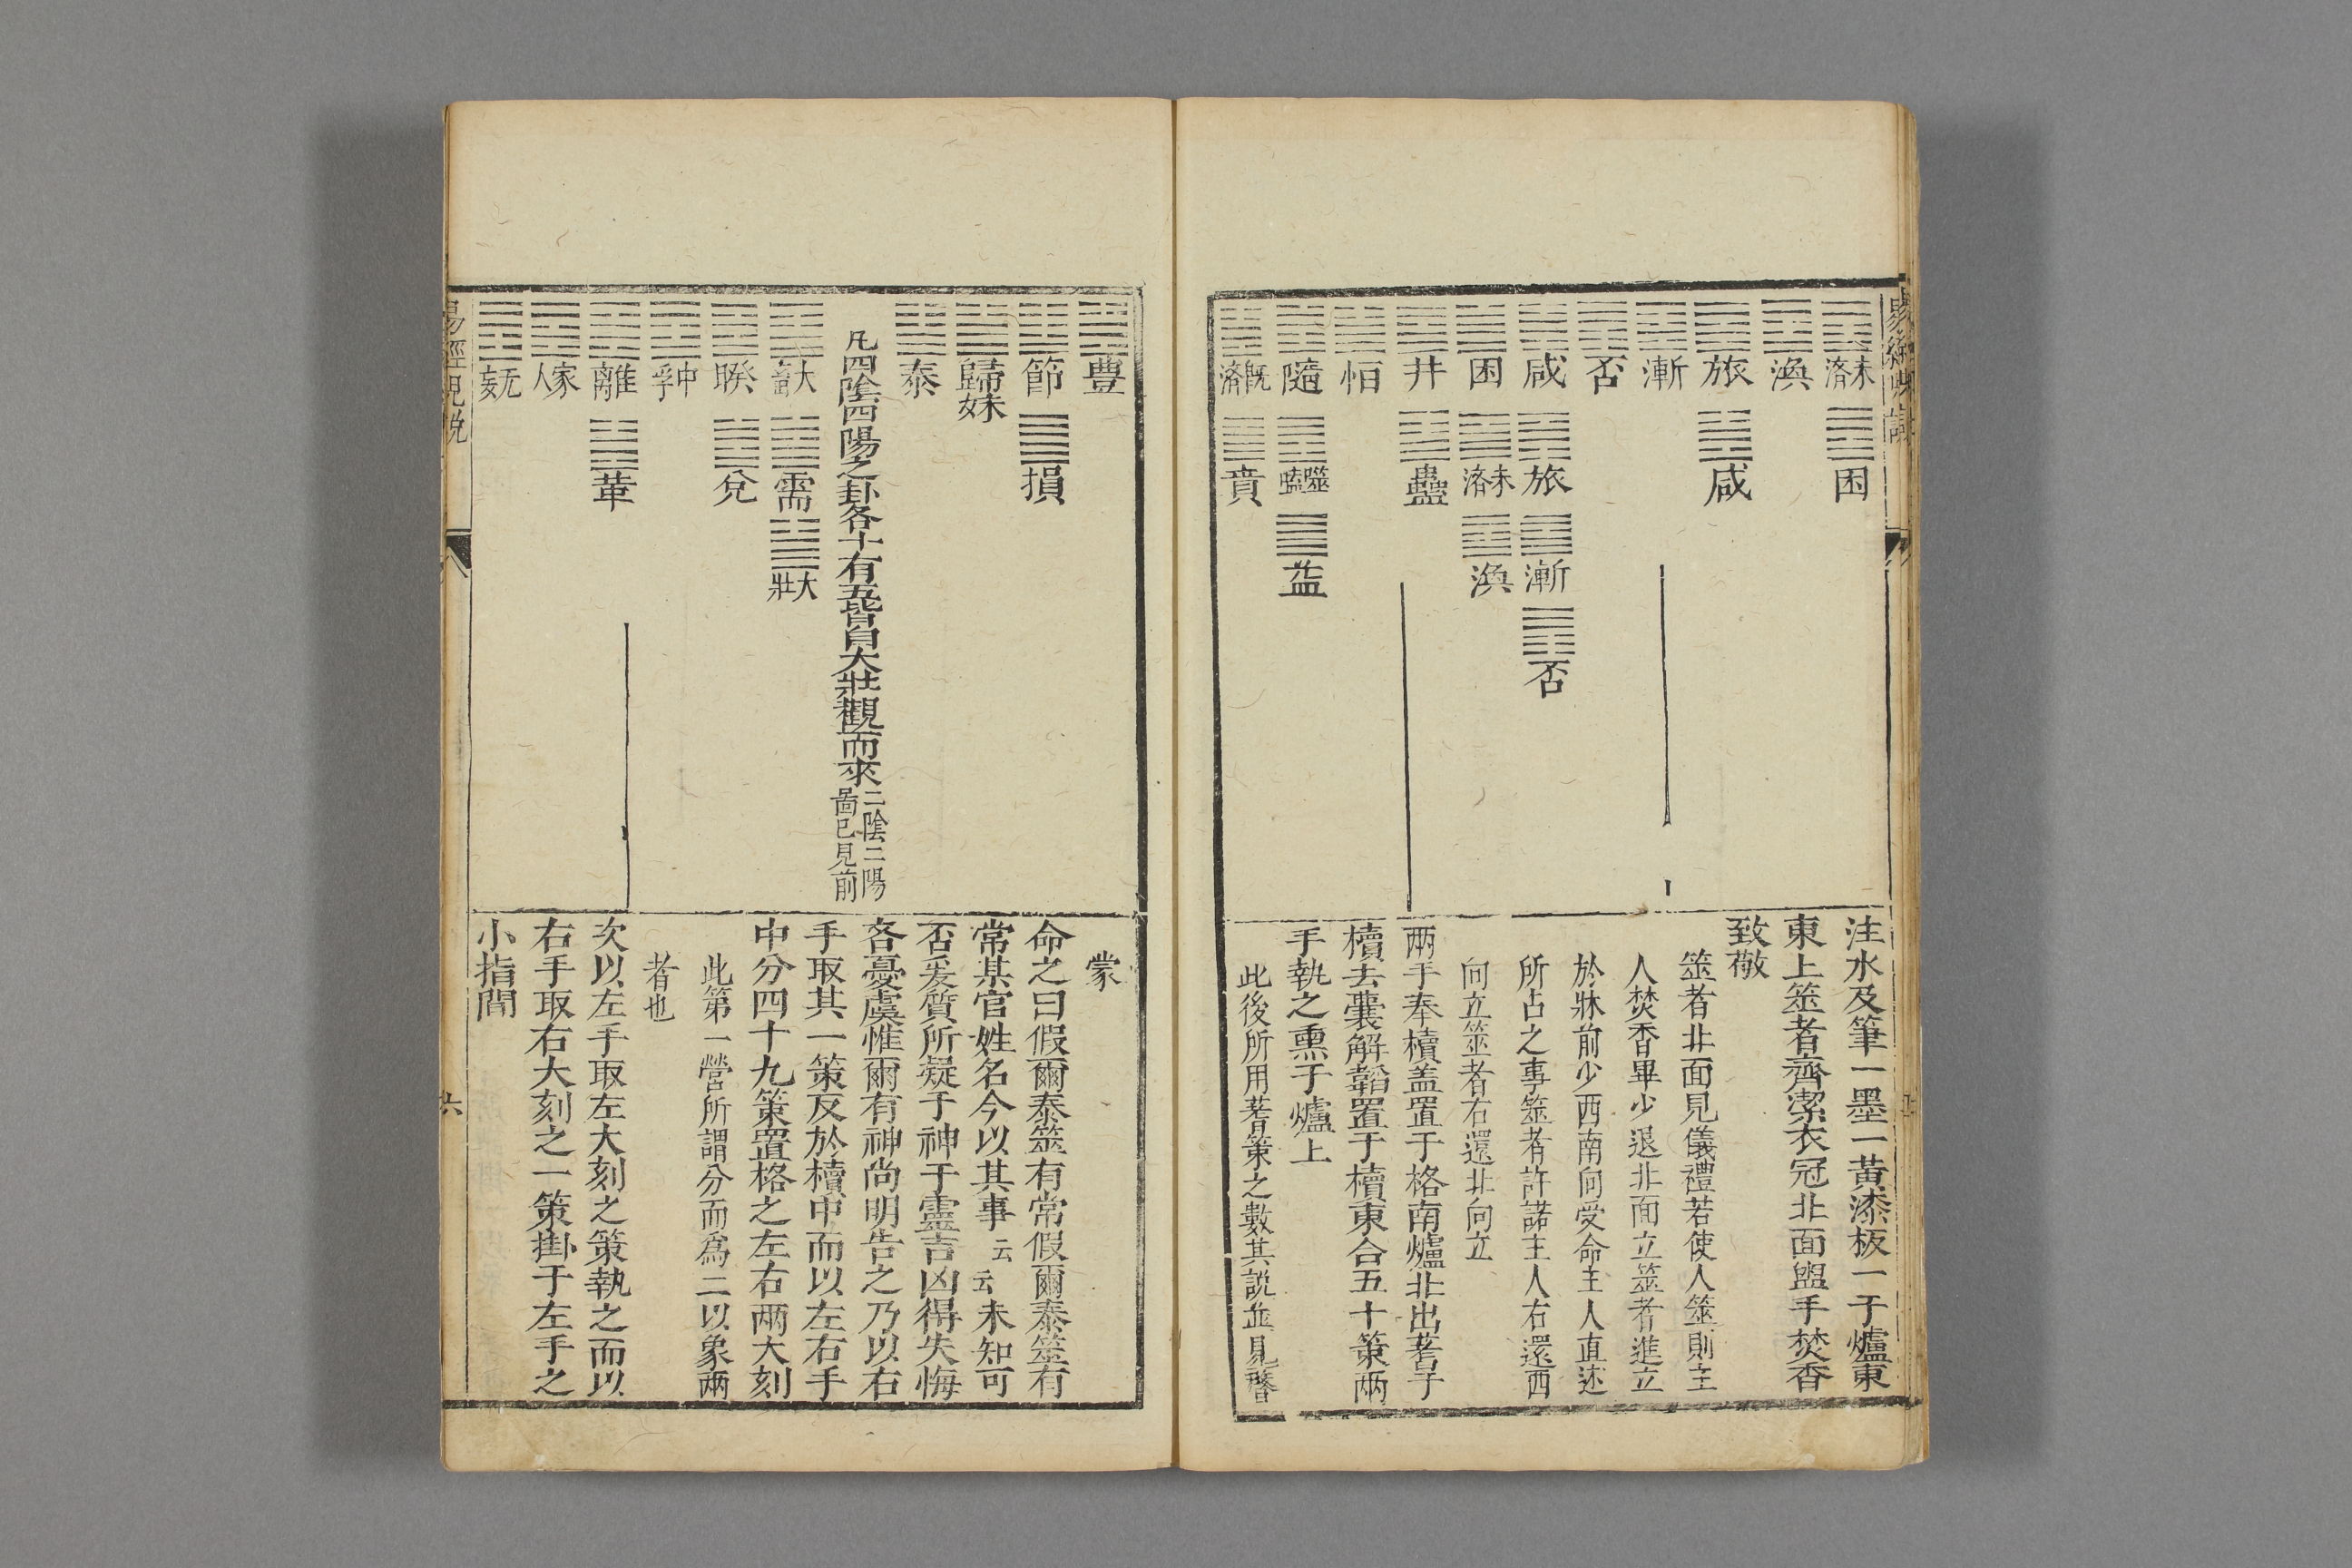 未濟 困
渙
旅 咸
漸
否
咸 旅 漸 否
困 未濟 渙
井 蠱
恒
隨 噬嗑 益
既濟 賁
注水及筆一墨一黃漆板一于爐東
東上筮者齊潔衣冠北面盥手焚香
致敬
筮者北面見儀禮若使人筮則主
人焚香畢少退北面立筮者進立
於牀前少西南向受命主人直述
所占之事筮者許諾主人右還西
向立筮者右還北向立
兩手奉櫝盖置于格南爐北出蓍于
櫝去囊解韜置于櫝東合五十策兩
手執之熏于爐上
此後所用蓍策之數其說並見啓
豐
節 損
歸妹
泰
凡四陰四陽之卦各十有五皆自大壯觀而來
二陰二陽
啚已見前
大畜 需 大壯
睽 兌
中孚
離 革
家人
无妄
蒙
命之曰假爾泰筮有常假爾泰筮有
常某官姓名今以其事云云未知可
否爰質所疑于神于靈吉凶得失悔
吝憂虞惟爾有神尚明告之乃以右
手取其一策反於櫝中而以左右手
中分四十九策置格之左右兩大刻
此第一營所謂分而爲二以象兩
者也
次以左手取左大刻之策執之而以
右手取右大刻之一策掛于左手之
小指間
易經兒說
六